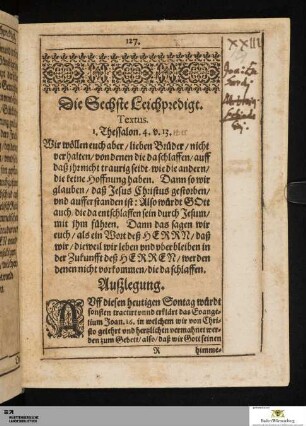 127.
XXIII
Die Sechste Leichpredigt.
Textus.
1. Thessalon. 4. v. 13.
Wir wöllen euch aber / lieben Brüder / nicht
verhalten / von denen die da schlaffen / auff
daß ihr nicht traurig seidt wie die andern /
die keine Hoffnung haben. Dann so wir
glauben / daß Jesus Christus gestorben /
vnd aufferstanden ist: Also würdt GOtt
auch / die da entschlaffen sein durch Jesum /
mit ihm führen. Dann das sagen wir
euch / als ein Wort deß HERRN / daß
wir / die weil wir leben vnd vberbleiben in
der Zukunfft deß HERREN / werden
denen nicht vorkommen / die da schlaffen.
Außlegung.
AVff diesen heutigen Sontag würdt
sonsten tractirt vnnd erklärt das Evange-
lium Joan. 16. in welchem wir von Chri-
sto gelehrt vnd hertzlichen vermahnet wer-
den zum Gebett / also / daß wir Gott seinen
R himme-